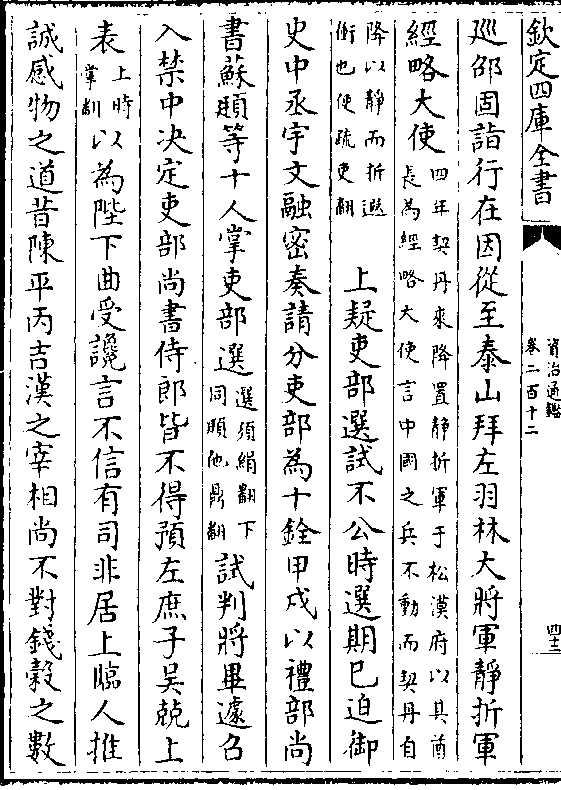 欽定四庫全書
資治通鑑
卷二百十二
四十二
廵邵固詣行在因從至泰山拜左羽林大將軍靜折軍
經略大使四年契丹來降置靜折軍于松漠府以其酋
長為經略大使言中國之兵不動而契丹自
降以靜而折遐
衝也使疏吏翻
上疑吏部選試不公時選期已迫御
史中丞宇文融密奏請分吏部為十銓甲戍以禮部尚
書蘇頲等十人掌吏部選選須絹翻下
同頲他鼎翻
試判將畢遽召
入禁中決定吏部尚書侍郎皆不得預左庶子吳兢上
表上時
掌翻
以為陛下曲受讒言不信有司非居上臨人推
誠感物之道昔陳平丙吉漢之宰相尚不對錢榖之數